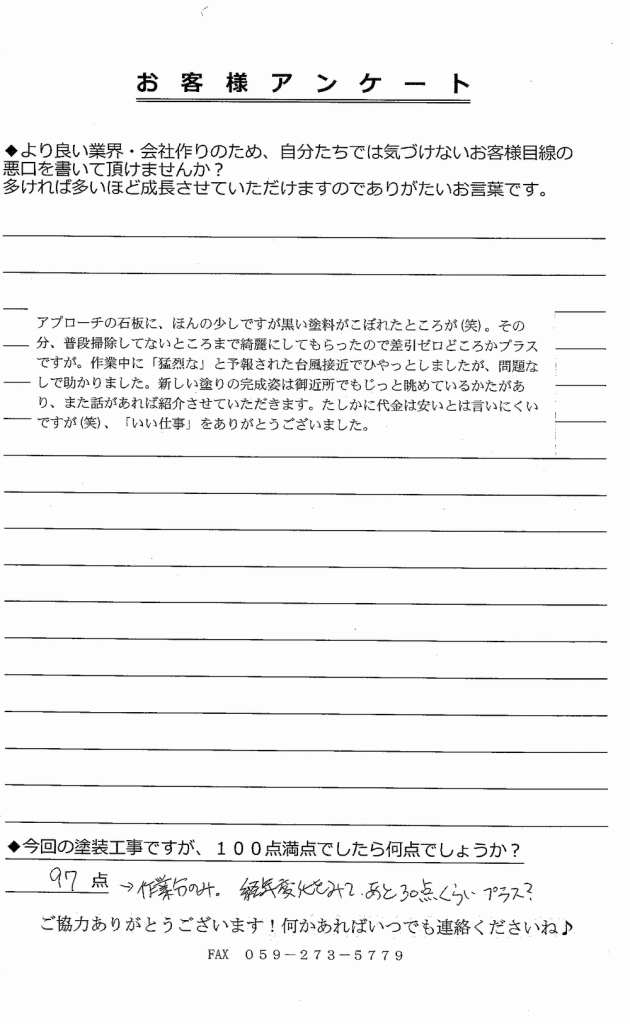 お客様アンケート
◆より良い業界・会社作りのため、自分たちでは気づけないお客様目線の
悪口を書いて頂けませんか？
多ければ多いほど成長させていただけますのでありがたいお言葉です。
アプローチの石板に、ほんの少しですが黒い塗料がこぼれたところが(笑)。その
分、普段掃除してないところまで綺麗にしてもらったので差引ゼロどころかプラス
ですが。作業中に「猛烈な」と予報された台風接近でひやっとしましたが、問題な
しで助かりました。新しい塗りの完成姿は御近所でもじっと眺めているかたがあ
り、また話があれば紹介させていただきます。たしかに代金は安いとは言いにくい
ですが(笑)、「いい仕事」をありがとうございました。
◆今回の塗装工事ですが、１００点満点でしたら何点でしょうか？
97 点 →作業分のみ。経年変化をみて、あと30点くらいプラス?
ご協力ありがとうございます！何かあればいつでも連絡くださいね♪
FAX ０５９－２７３－５７７９